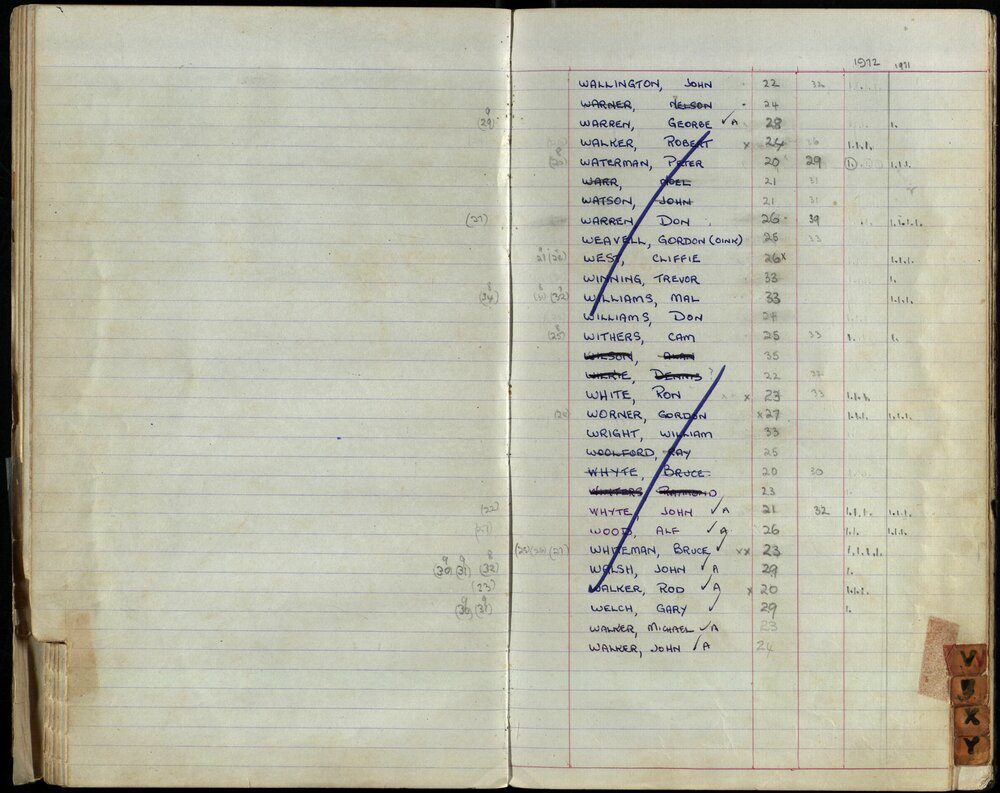 1972 1971
WALLINGTON, JOHN 22 32
WARNER, NELSON 24
9
(29) WARREN, GEORGE ✓ A 28 1.
WALKER, ROBERT x 24 36 1.1.1.
WATERMAN, PETER 20 29 (1). 1.1.1.
WARR, NOEL 21 31
WATSON, JOHN 21 31
(27) WARREN, DON 26 39 1.1.1.1.
WEAVELL, GORDON (OINK) 25 33
WEST, CLIFFIE 26x 1.1.1.
WINNING, TREVOR 33 1.
(34) (32) WILLIAMS, MAL 33 1.1.1.
WILLIAMS, DON 24
(25) WITHERS, CAM 25 33 1. 1.
WILSON, ALAN 35
WILKIE, DENNIS ? 22 32
WHITE, RON x 23 33 1.1.1.
WORNER, GORDON x27 1.1.1. 1.1.1.
WRIGHT, WILLIAM 33
WOOLFORD, RAY 25
WHYTE, BRUCE 20 30
WINTERS RAYMOND 23
(22) WHYTE, JOHN ✓ A 21 32 1.1.1. 1.1.1.
(27) WOOD, ALF ✓ A 26 1.1. 1.1.1.
(25) (26) (27) WHITEMAN, BRUCE ✓ xx 23 1.1.1.1.
9 9 8
(30) (31) (32) WALSH, JOHN ✓ A 29 1.
(23) WALKER, ROD ✓ A x 20 1.1.1.
9 9
(30) (31) WELCH, GARY ✓ 29 1.
WALKER, MICHAEL ✓ A 23
WALKER, JOHN ✓ A 24
V
X
Y